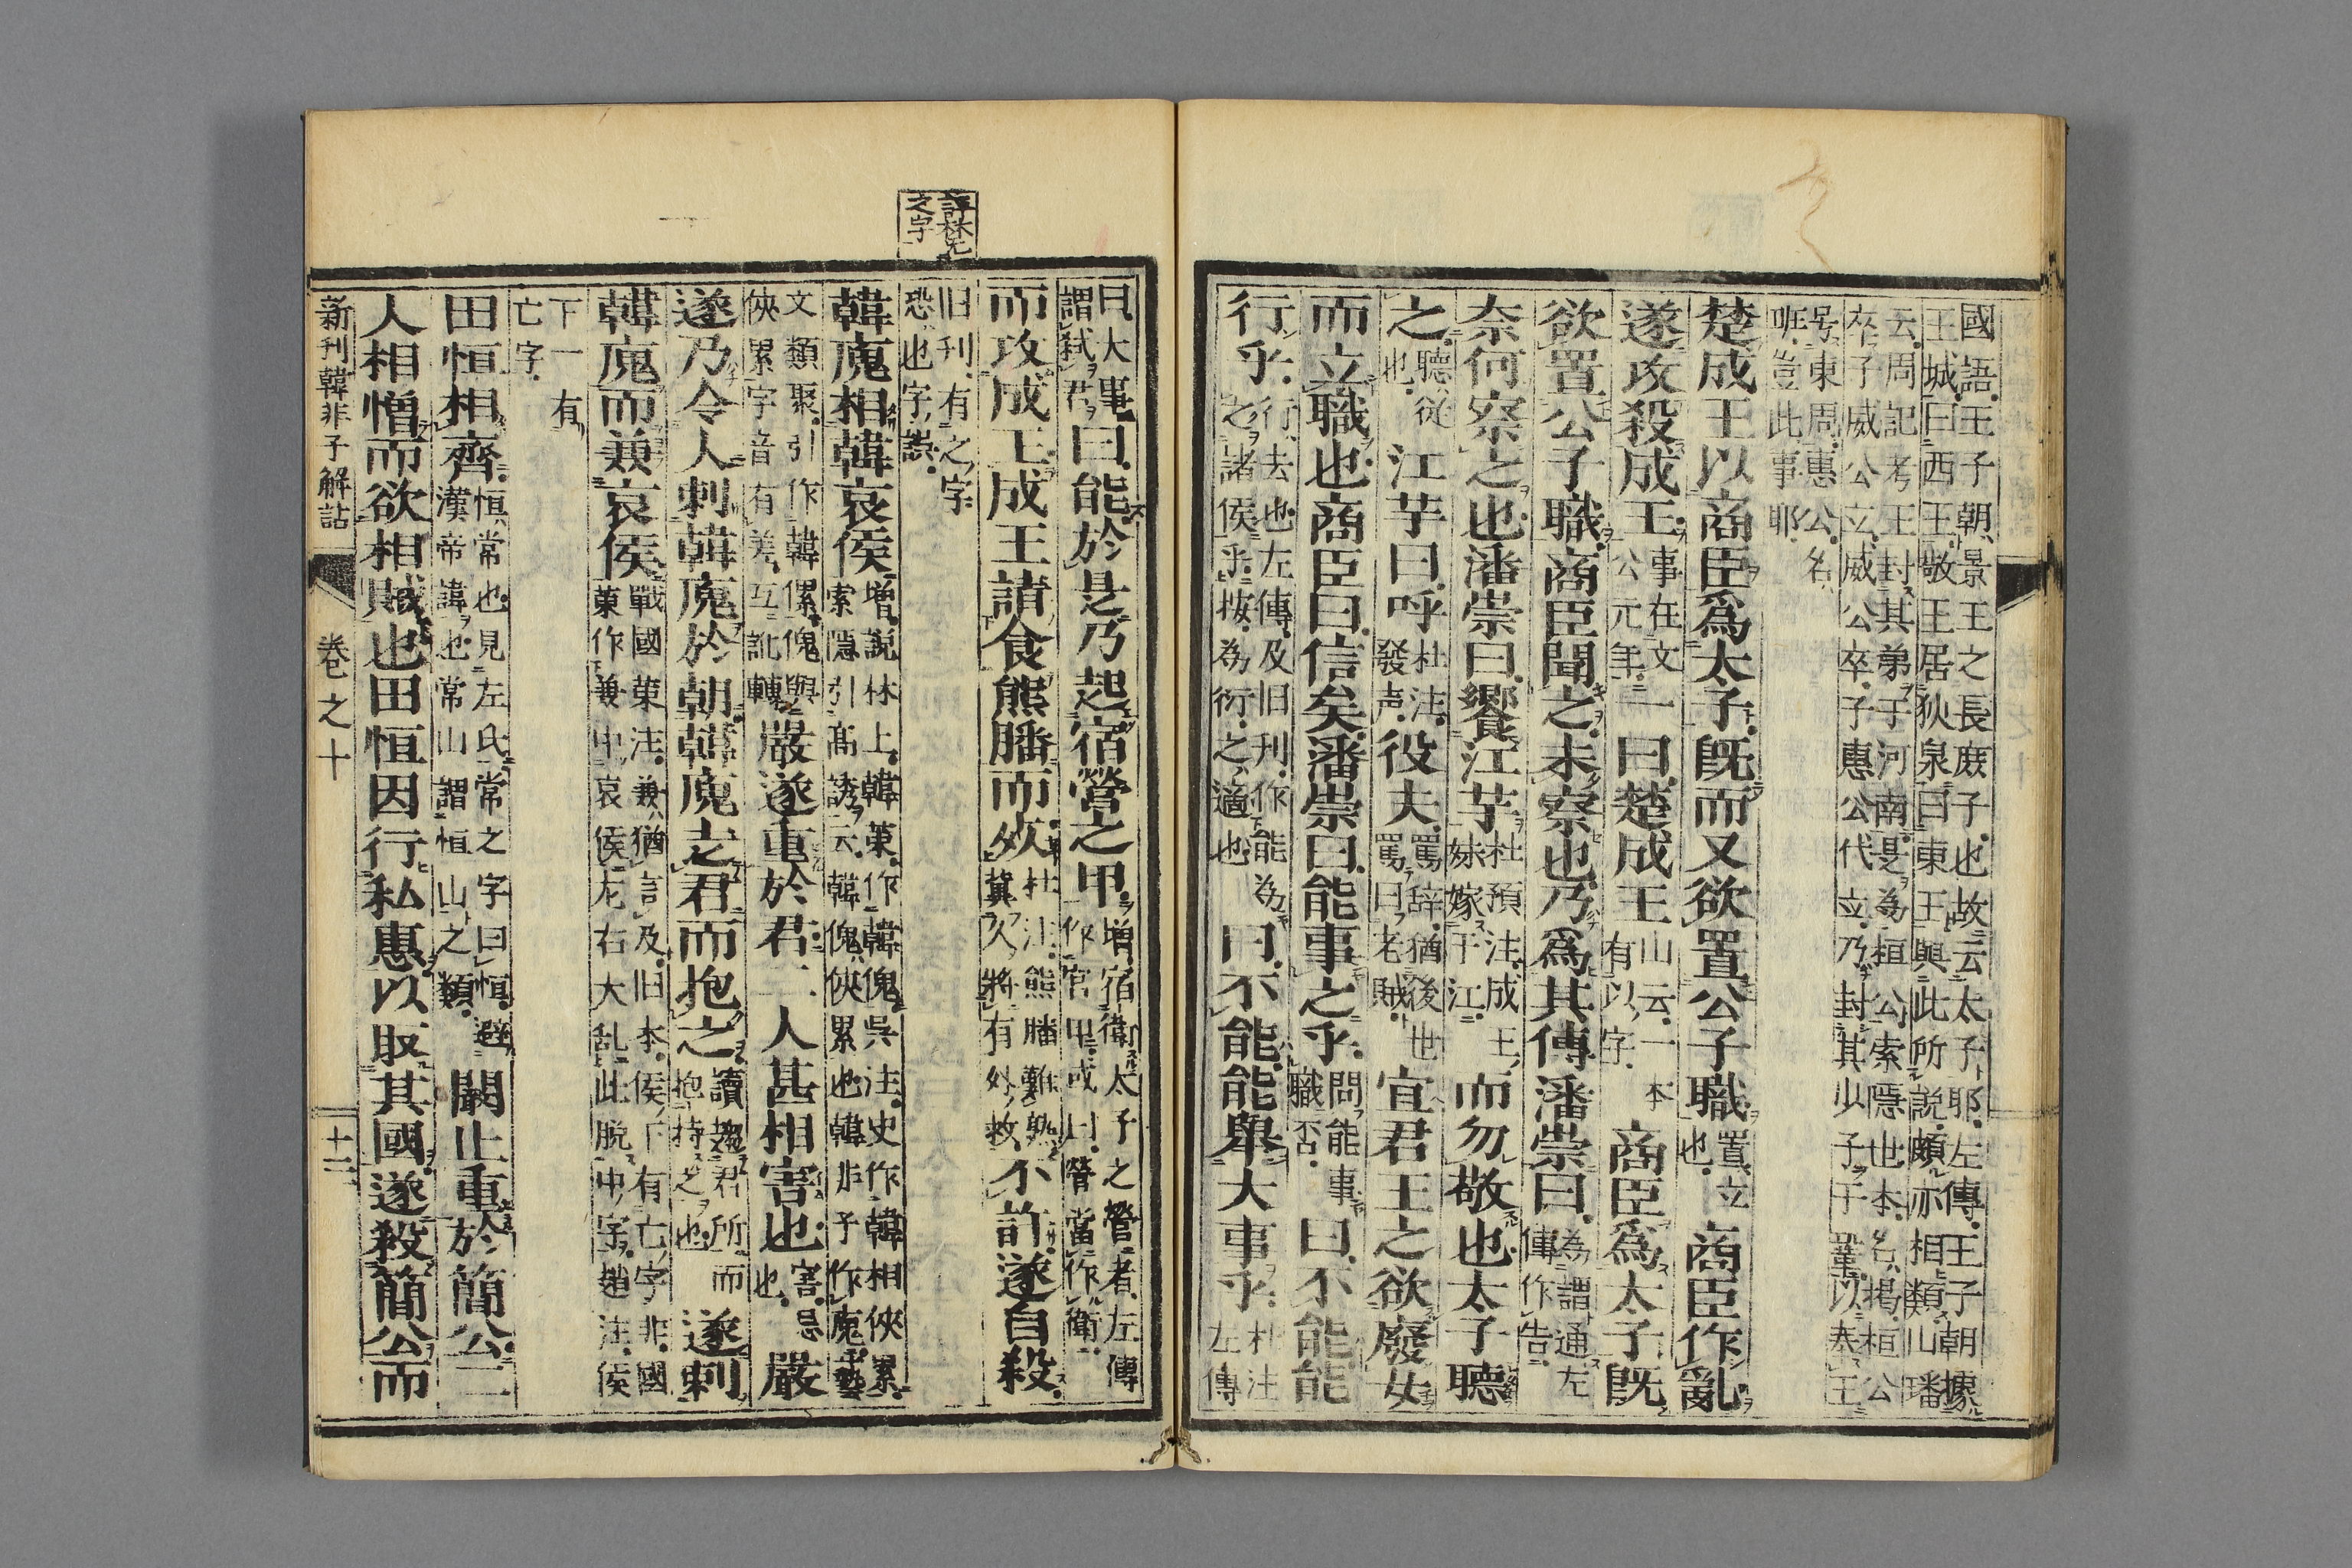 國語王子朝景王之長庶子也故云太子耶左傳王子朝據
王城曰西王敬王居狄泉曰東王與此所説頗亦相類山璠
云周記考王封其弟于河南是為桓公索隱也本名掲桓公
卒子威公立威公卒子惠公代立乃封其少子于鞏以奉王
号東周惠公名
班豈此事耶
楚成王以商臣爲太子既而又欲置公子職置立也商臣作亂
遂攻殺成王事在文公元年一曰楚成王山云一本有以字商臣爲太子既
欲置公子職商臣聞之未察也乃爲其傅潘崇曰為謂通左傳作告
奈何察之也潘崇曰饗江芊杜預注成王妹嫁于江而勿敬也太子聽
之聽從也江芊曰呼杜注發声役夫罵辞猶後世罵曰老賊宜君王之欲廢女
而立職也商臣曰信矣潘崇曰能事之乎問能事職否曰不能能
行乎行去也左傳及旧刊作能為之諸侯乎按為衍之適也曰不能能舉大事乎杜注左傳
曰大事謂弑君曰能於是乃起宿營之甲増宿衛太子之營者左傳作宮甲或曰營當作衛
而攻成王成王請食熊膰而死杜注熊膰難熟冀久將有外救不許遂自殺
旧刊有之字
恐也字誤
評林无之字
韓廆相韓哀侯増説林上韓策作韓傀呉注史作韓相俠累索隱引高誘云韓傀俠累也韓非子作廆藝
文類聚引作韓傫傀與俠累字音有差互訛轉嚴遂重於君二人甚相害也害忌也嚴
遂乃令人刺韓廆於朝韓廆走君而抱之讀趨君所而抱持之也遂刺
韓廆而兼哀侯戰國策注兼猶言及旧本侯下有亡字非國策作兼中哀侯左右大乱此脱中字趙注侯
下一有
亡字
田恒相齊恒常也見左氏常之字曰恒避漢帝諱也常山謂恒山之類闞止重於簡公二
人相憎而欲相賊也田恒因行私惠以取其國遂殺簡公而
新刊韓非子解詁 卷之十 十二